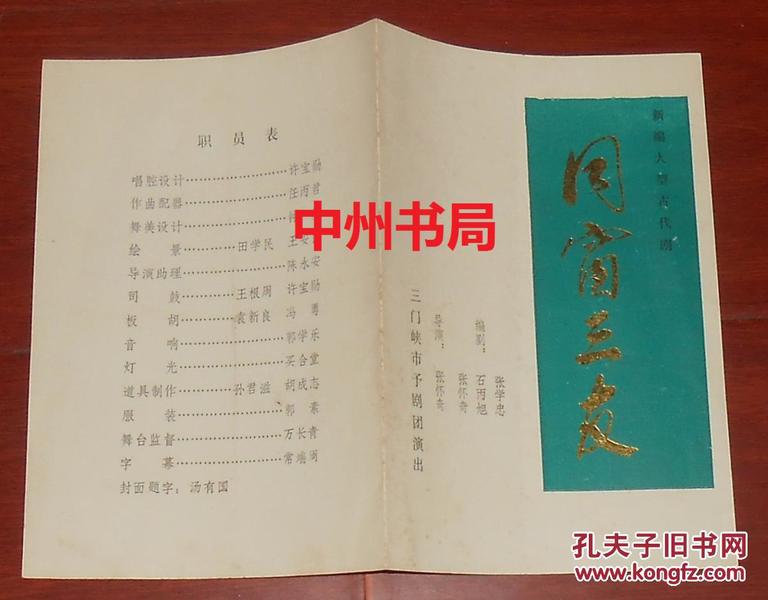 新编大型古代剧
同窗三友
编剧：
张学忠
石丙旭
张怀奇
导演：张怀奇
三门峡市予剧团演出
职员表
唱腔设计………………许宝勋
作曲配器………………任丙君
舞美设计………………
绘景………田学民 王
导演助理………………陈永安
司鼓………王根周 许宝勋
板胡………袁新良 冯勇
音响………………郭学乐
灯光………………买合堂
道具制作………孙君滋 胡成志
服装………………郭素
舞台监督………………万长青
字幕………………常瑞周
封面题字：汤有国
中州书局
孔夫子旧书网
www.kongfz.com